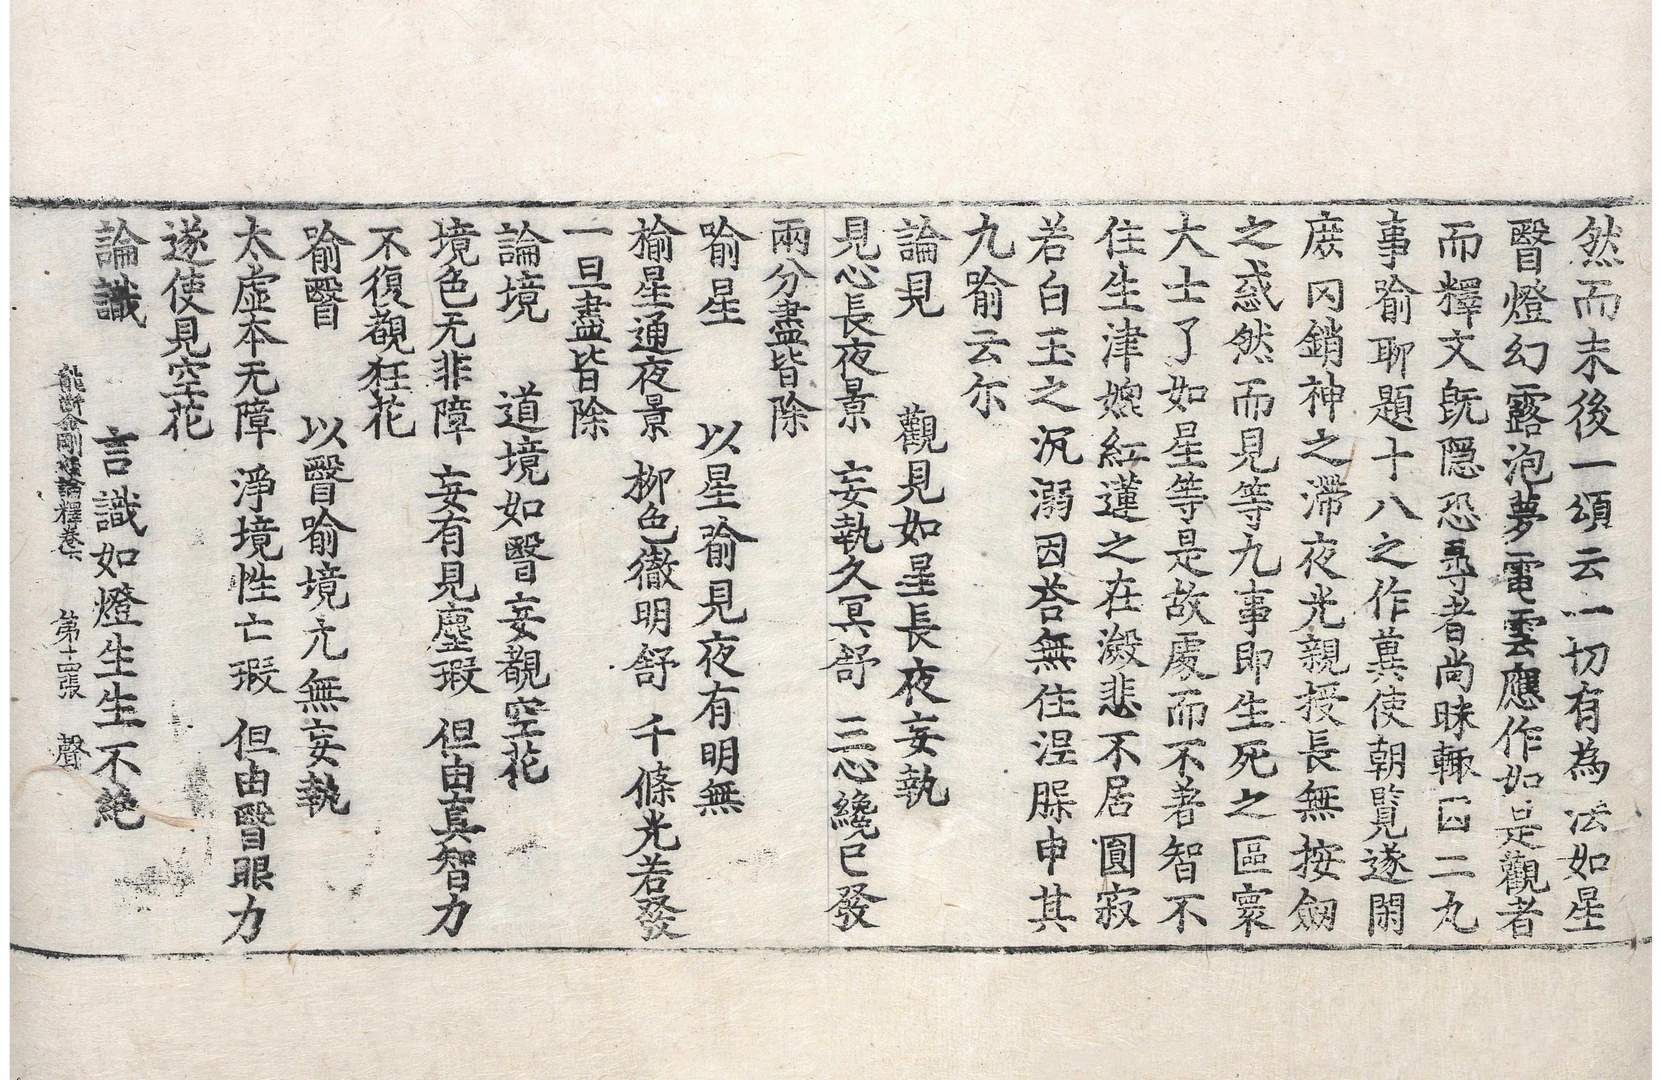 然而末後一頌云一切有為法如星
瞖燈幻露泡夢電雲應作如是觀者
而釋文旣隱恐㝷者尚昧輙因二九
事喻聊題十八之作冀使朝覧遂閑
庻罔銷神之滯夜光親授長無按劒
之惑然而見等九事即生死之區寰
大士了如星等是故處而不著智不
住生津嬎紅蓮之在濲悲不居圓寂
若白玉之沉溺因荅無住涅牒申其
九喻云尒
論見　觀見如星長夜妄執
見心長夜景　妄執久冥舒　三心纔已發
兩分盡皆除
喻星　以星喻見夜有明無
榆星通夜景　柳色徹明舒　千條光若發
一旦盡皆除
論境　道境如瞖妄覩空花
境色无非障　妄有見塵瑕　但由真智力
不復覩狂花
喻瞖　以瞖喻境亢無妄執
太虛本无障　淨境性亡瑕　但由瞖眼力
遂使見空花
論識　言識如燈生生不絶
能斷金剛經論釋卷下　第十四張　聲